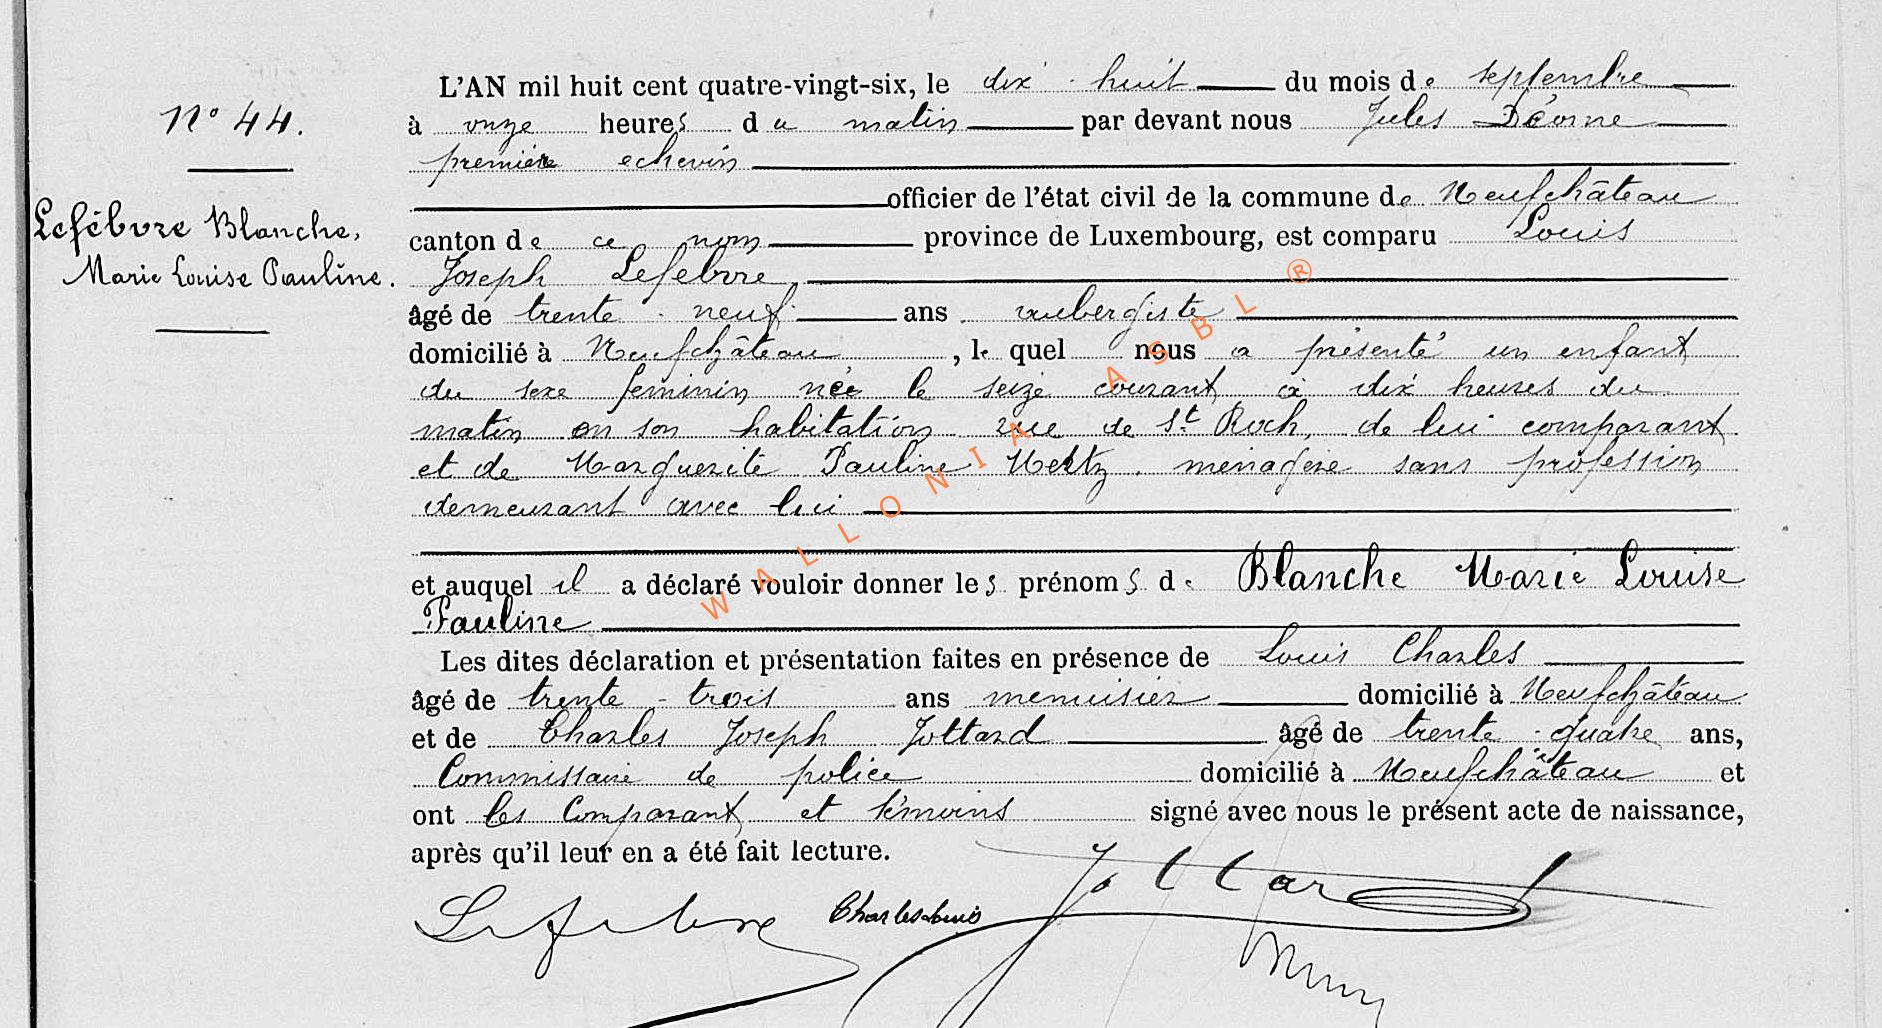 N° 44.
Lefèbvre Blanche,
Marie Louise Pauline.
L'AN mil huit cent quatre-vingt-six, le dix-huit du mois de septembre
à onze heures du matin par devant nous Jules
première echevin
officier de l'état civil de la commune de Neufchâteau
canton de ce nom province de Luxembourg, est comparu Louis
Joseph Lefebvre,
âgé de trente-neuf ans aubergiste
domicilié à Neufchâteau, lequel nous a présenté un enfant
du sexe feminin née le seize courant à dix heures du
matin en son habitation rue de St Roch, de lui comparant
et de Marguerite Pauline menagère sans profession
demeurant avec lui
et auquel il a déclaré vouloir donner les prénoms de Blanche Marie Louise
Pauline
Les dites déclaration et présentation faites en présence de Louis Charles
âgé de trente-trois ans menuisier domicilié à Neufchâteau
et de Charles Joseph Jottard âgé de trente-quatre ans,
Commissaire de police domicilié à Neufchâteau et
ont les Comparant et témoins signé avec nous le présent acte de naissance,
après qu'il leur en a été fait lecture.
Lefebvre Charles Louis Jottard
WALLONIA ASBL ®